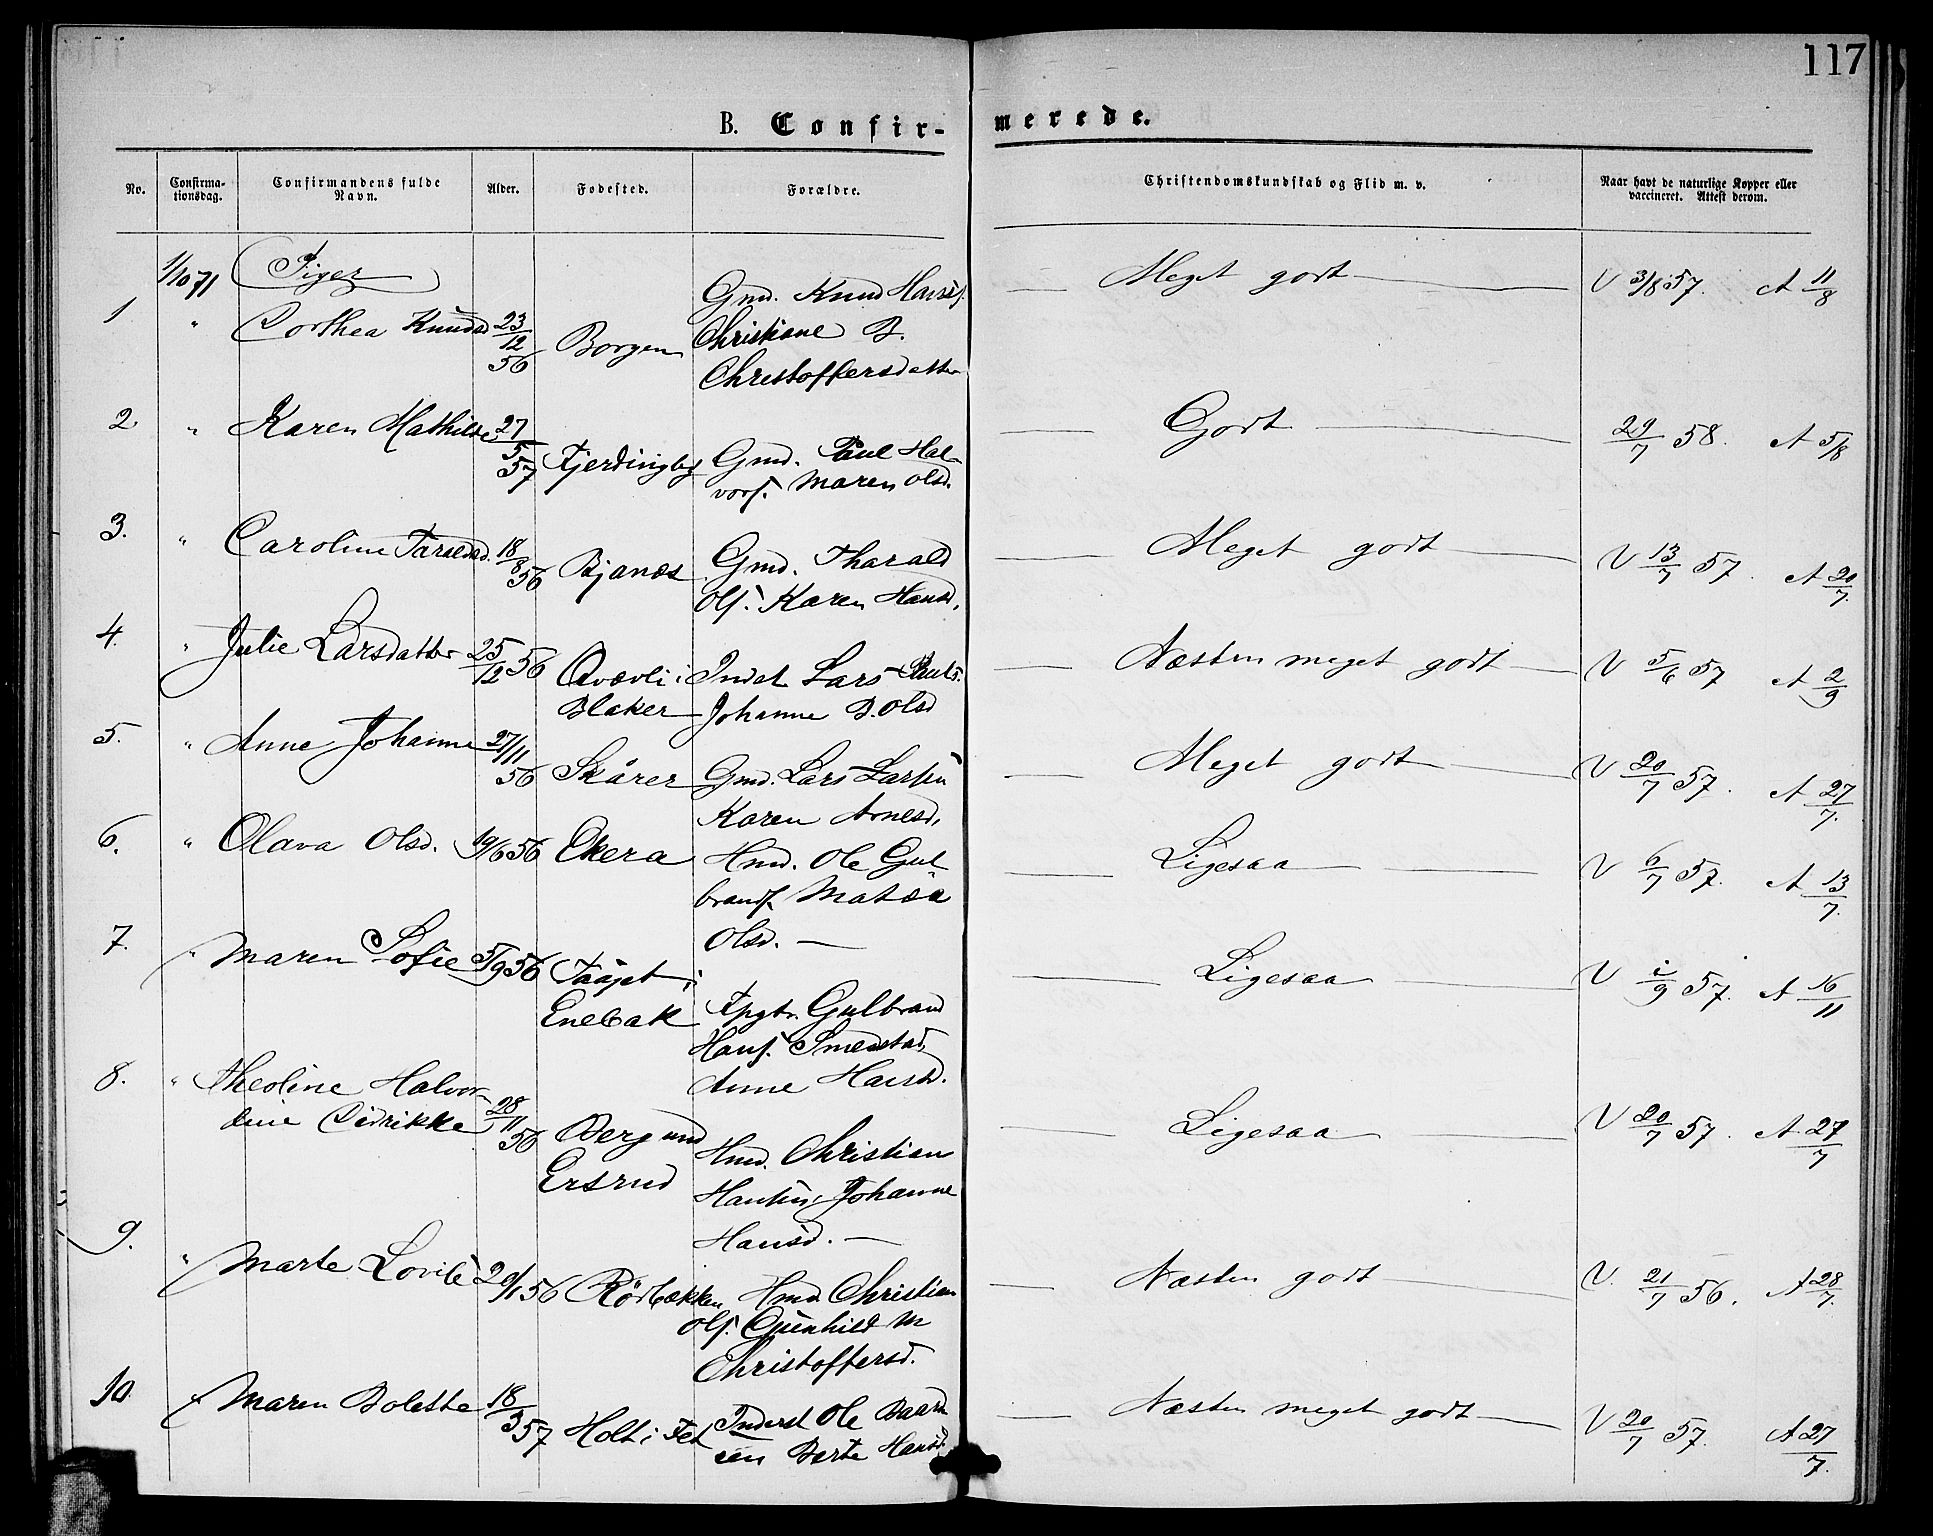 117
B. Confirmerede.
No. Confirmationsdag. Confirmandens fulde Navn. Alder. Fødested. Forældre. Christendomskundskab og Flid m. v. Naar havt de naturlige Kopper eller vaccineret. Attest derom.
1/10 71 Piger
1 " Dorthea Knudsd. 23/12 56 Borgen Gmd. Knud Hansf. Meget godt V 3/8 57. A 11/8
Christiane B.
Christoffersdatter
2. " Karen Mathilde 27/5 57 Fjerdingby Gmd. Paul Hal- Godt 29/7 58. A 5/8
vorf. Maren Olsd.
3. " Caroline Taraldsd. 18/8 56 Bjanes Gmd. Tharald Meget godt V 13/7 57. A 20/7.
Olf. Karen Hansd.
4. " Julie Larsdatter 25/12 56 Qvævli i Indst Lars Pauls. Næsten meget godt V 5/6 57 A 2/9
Blaker Johanne B. Olsd
5. " Anne Johanne 27/11 56 Skårer Gmd. Lars Larsen Meget godt V 20/7 57. A 27/7.
Karen Arnesd.
6. " Olava Olsd. 19/6 56 Ekera Hmd. Ole Gul- Ligesaa V 6/7 57. A 13/7.
brandf. Matea
Olsd. —
7. " Maren Sofie 5/9 56 i Ligesaa V 57. A 16/11
Enebak Fpgtr. Gulbrand
Hansf. Smedstad,
Anne Hansd.
8. " Theoline Halvor- 28/11 56 Berg und Ligesaa V 20/7 57. A 27/7
dine Didrikke Ersrud Hmd. Christian
Hansen, Johanne
Hansd. —
9. " Marte Lovise 56 Rörbækken Hmd. Christian Næsten godt V. 21/7 56. A 28/7.
Olf. Gunhild M
Christoffersd.
10. " Maren Bolette 18/3 57 Holt i Fet Inderst Ole Baard- Næsten meget godt V 20/7 57. A 27/7.
sen Berte Hansd.